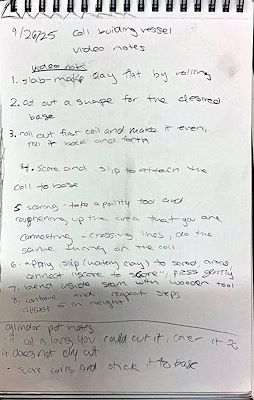 9/26/25 coil building vessel
video notes
video notes
1. slab - make clay flat by rolling
2. cut out a shape for the desired
base
3. roll out first coil and make it even,
roll it back and forth
4. Score and slip to attach the
coil to base
5 scoring - take a pottry tool and
roughening up the area that you are
connecting - crossing lines, do the
same thing on the coil
6. apply slip (watery clay) to scored areas,
connect "score to score", press gently
7. blend inside seam with wooden tool
8. continue and repeat steps
5 in height
pot notes
- if coil is long you could cut it, cover it so
it does not dry out
- score coils and stick it to base